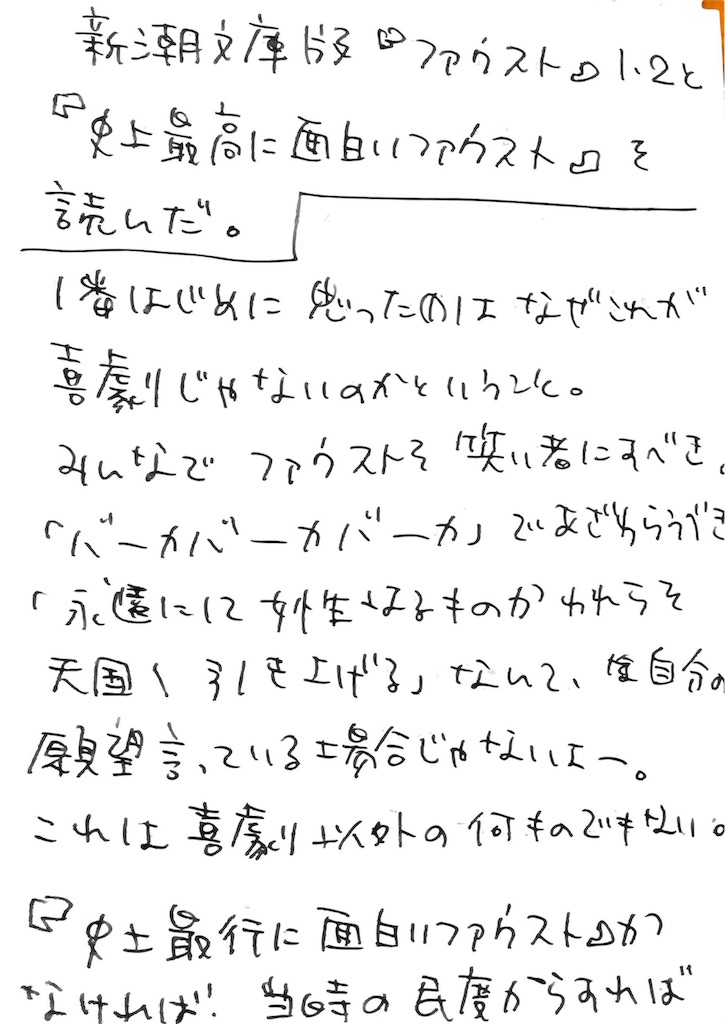 新潮文庫版『ファウスト』1.2と
『史上最高に面白いファウスト』を
読んだ。
1番はじめに思ったのはなぜこれが
喜劇じゃないのかということ。
みんなでファウストを笑い者にすべき、
「バーカバーカバーカ」であざわらうべき
「永遠にして女性なるものがわれらを
天国へ引き上げる」なんて、自分の
願望言っている場合じゃないよー。
これは喜劇以外の何ものでもない。
『史上最行に面白いファウスト』が
なければ、当時の民度からすれば